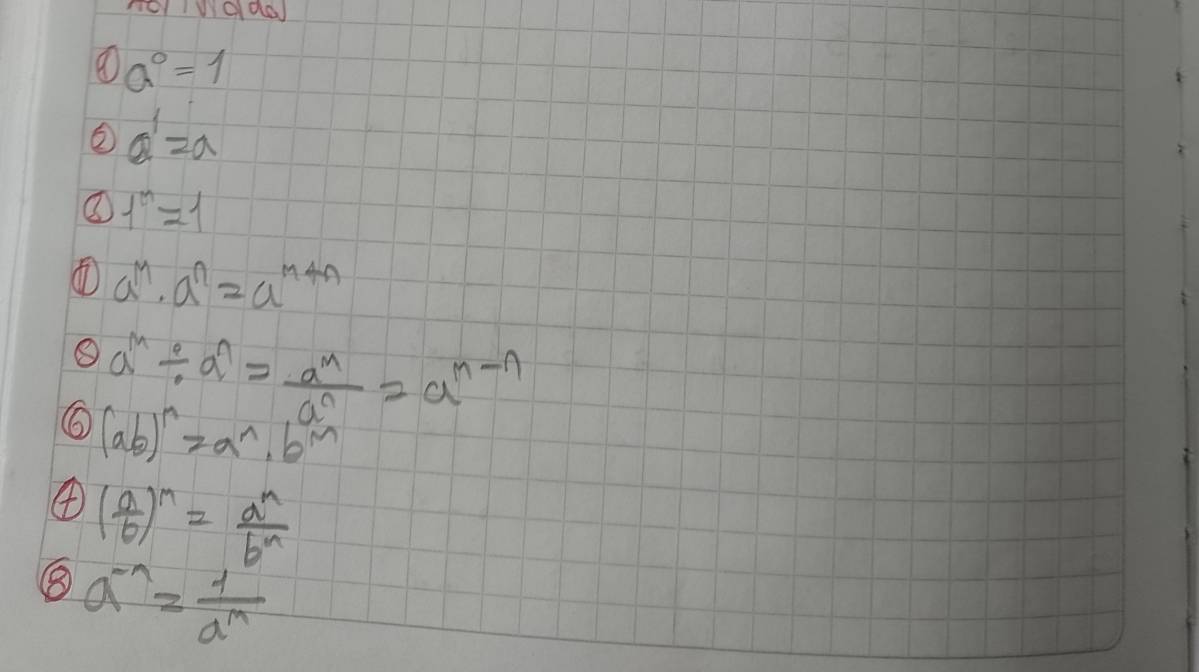 ① a⁰ = 1
② a¹ = a
③ 1ᵐ = 1
④ aᵐ . aⁿ = aᵐ⁺ⁿ
⑤ aᵐ ÷ aⁿ = aᵐ/aⁿ = aᵐ⁻ⁿ
⑥ (ab)ⁿ = aⁿ . bᵐ
⑦ (a/b)ᵐ = aⁿ/bⁿ
⑧ a⁻ⁿ = 1/aᵐ